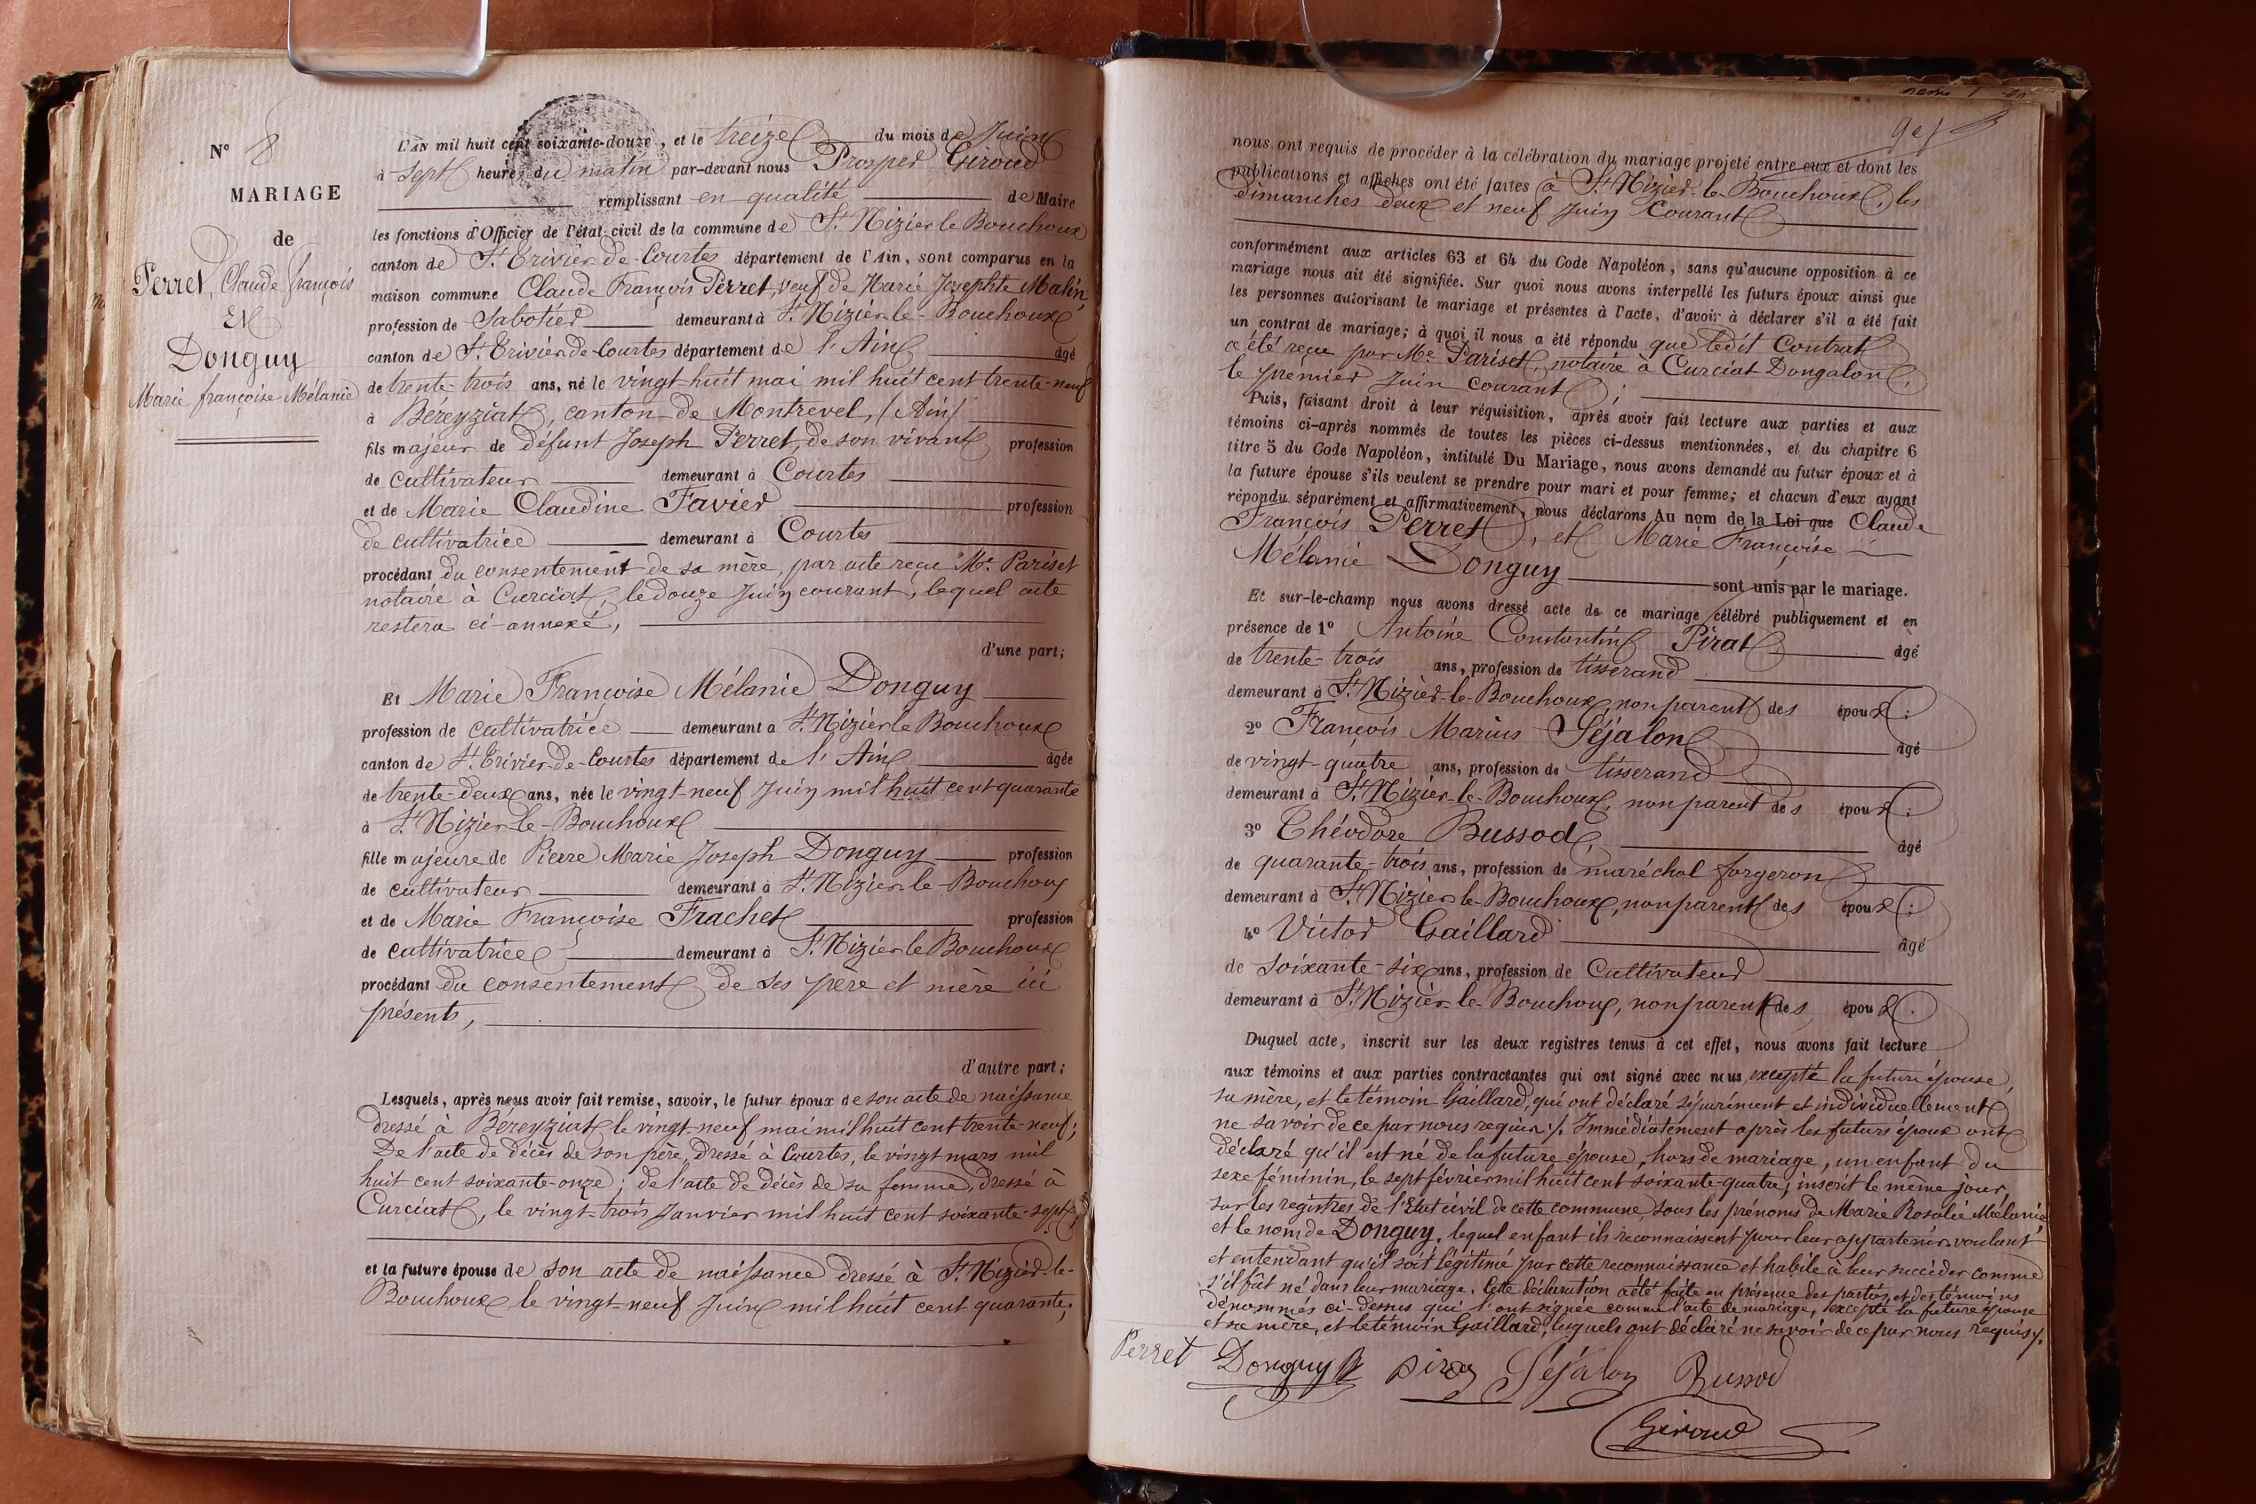 N° 8
MARIAGE
de
Perret, Claude françois
Et
Donguy
Marie françoise Mélanie
L'AN mil huit cent soixante-douze, et le treize du mois de Juin
à sept heures du matin par-devant nous Prosper Giroud
remplissant en qualité de Maire
les fonctions d'Officier de l'état civil de la commune de St Nizier le Bouchoux
canton de St Trivier-de-Courtes département de l'Ain, sont comparus en la
maison commune Claude François Perret, veuf de Marie Josephte Malin,
profession de Sabotier demeurant à St Nizier-le-Bouchoux
canton de St Trivier-de-Courtes département de l'Ain âgé
de trente-trois ans, né le vingt-huit mai mil huit cent trente-neuf
à Béreyziat, canton de Montrevel, (Ain)
fils majeur de défunt Joseph Perret, de son vivant profession
de cultivateur demeurant à Courtes
et de Marie Claudine Favier profession
de cultivatrice demeurant à Courtes
procédant du consentement de sa mère, par acte reçu Me Pariset
notaire à Curciat, le douze Juin courant, lequel acte
restera ci-annexé,
d'une part;
Et Marie Françoise Mélanie Donguy
profession de cultivatrice demeurant à St Nizier le Bouchoux
canton de St Trivier-de-Courtes département de l'Ain âgée
de trente-deux ans, née le vingt-neuf Juin mil huit cent quarante
à St Nizier-le-Bouchoux
fille majeure de Pierre Marie Joseph Donguy profession
de cultivateur demeurant à St Nizier-le-Bouchoux
et de Marie Françoise Frachet profession
de cultivatrice demeurant à St Nizier le Bouchoux
procédant du consentement de ses père et mère ici
présents,
d'autre part;
Lesquels, après nous avoir fait remise, savoir, le futur époux de son acte de naissance
dressé à Béreyziat le vingt-neuf mai mil huit cent trente-neuf;
De l'acte de décès de son père, dressé à Courtes, le vingt mars mil
huit cent soixante-onze; de l'acte de décès de sa femme, dressé à
Curciat, le vingt-trois Janvier mil huit cent soixante-sept;
et la future épouse de son acte de naissance dressé à St Nizier-le-
Bouchoux le vingt-neuf Juin mil huit cent quarante;
nous ont requis de procéder à la célébration du mariage projeté entre eux et dont les
publications et affiches ont été faites à St Nizier-le-Bouchoux, les
dimanches deux et neuf Juin courant
conformément aux articles 63 et 64 du Code Napoléon, sans qu'aucune opposition à ce
mariage nous ait été signifiée. Sur quoi nous avons interpellé les futurs époux ainsi que
les personnes autorisant le mariage et présentes à l'acte, d'avoir à déclarer s'il a été fait
un contrat de mariage; à quoi il nous a été répondu que ledit contrat
a été reçu par Me Pariset, notaire à Curciat Dongalon,
le premier Juin courant;
Puis, faisant droit à leur réquisition, après avoir fait lecture aux parties et aux
témoins ci-après nommés de toutes les pièces ci-dessus mentionnées, et du chapitre 6
titre 5 du Code Napoléon, intitulé Du Mariage, nous avons demandé au futur époux et à
la future épouse s'ils veulent se prendre pour mari et pour femme; et chacun d'eux ayant
répondu séparément et affirmativement, nous déclarons Au nom de la Loi que Claude
François Perret, et Marie Françoise
Mélanie Donguy sont unis par le mariage.
Et sur-le-champ nous avons dressé acte de ce mariage célébré publiquement et en
présence de 1° Antoine Constantin Pirat âgé
de trente-trois ans, profession de tisserand
demeurant à St Nizier-le-Bouchoux, non parent des époux;
2° François Marius Séjalon âgé
de vingt-quatre ans, profession de tisserand
demeurant à St Nizier-le-Bouchoux, non parent des époux;
3° Théodore Bussod, âgé
de quarante-trois ans, profession de maréchal forgeron
demeurant à St Nizier-le-Bouchoux, non parent des époux;
4° Victor Gaillard âgé
de soixante-six ans, profession de Cultivateur
demeurant à St Nizier-le-Bouchoux, non parent des époux.
Duquel acte, inscrit sur les deux registres tenus à cet effet, nous avons fait lecture
aux témoins et aux parties contractantes qui ont signé avec nous, excepté la future épouse,
sa mère, et le témoin Gaillard, qui ont déclaré séparément et individuellement
ne savoir de ce par nous requis ./. Immédiatement après les futurs époux ont
déclaré qu'il est né de la future épouse, hors de mariage, un enfant du
sexe féminin, le sept février mil huit cent soixante-quatre, inscrit le même jour,
sur les registres de l'Etat civil de cette commune, sous les prénoms de Marie Rosalie Mélanie
et le nom de Donguy, lequel enfant ils reconnaissent pour leur appartenir, voulant
et entendant qu'il soit légitimé par cette reconnaissance et habile à leur succéder comme
s'il fût né dans leur mariage. Cette déclaration a été faite en présence des parties, et des témoins
dénommés ci-dessus qui l'ont signée comme l'acte de mariage, excepté la future épouse
et sa mère, et le témoin Gaillard, lesquels ont déclaré ne savoir de ce par nous requis ./.
Perret Donguy Pirat Séjalon Bussod
Giroud